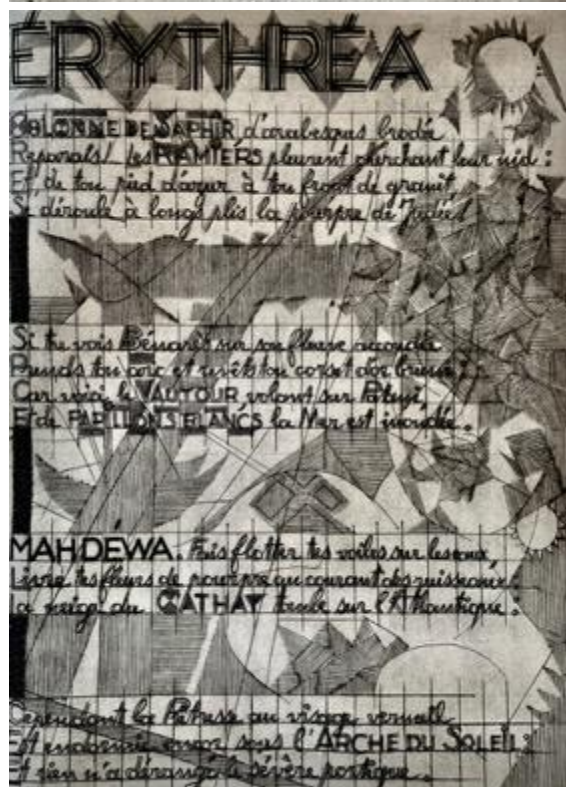 ÉRYTHRÉA
COLONNE DE SAPHIR d'arabesques brodée
Reparais! Les RAMIERS pleurent cherchant leur nid :
Et de ton pied d'azur à ton front de granit,
Se déroule à longs plis la pourpre de Judée!
Si tu vois Bénarès sur son fleuve accoudée
Prends ton arc et revêts ton corset d'or bruni :
Car voici le VAUTOUR volant sur Patani,
Et de PAPILLONS BLANCS la Mer est inondée.
MAHDÉWA. Fais flotter tes voiles sur les eaux,
Livre tes fleurs de pourpre au courant des ruisseaux :
La neige du CATHAY tombe sur l'Atlantique :
Cependant la Prêtresse au visage vermeil
Est endormie encor sous l'ARCHE DU SOLEIL :
Et rien n'a dérangé le sévère portique.